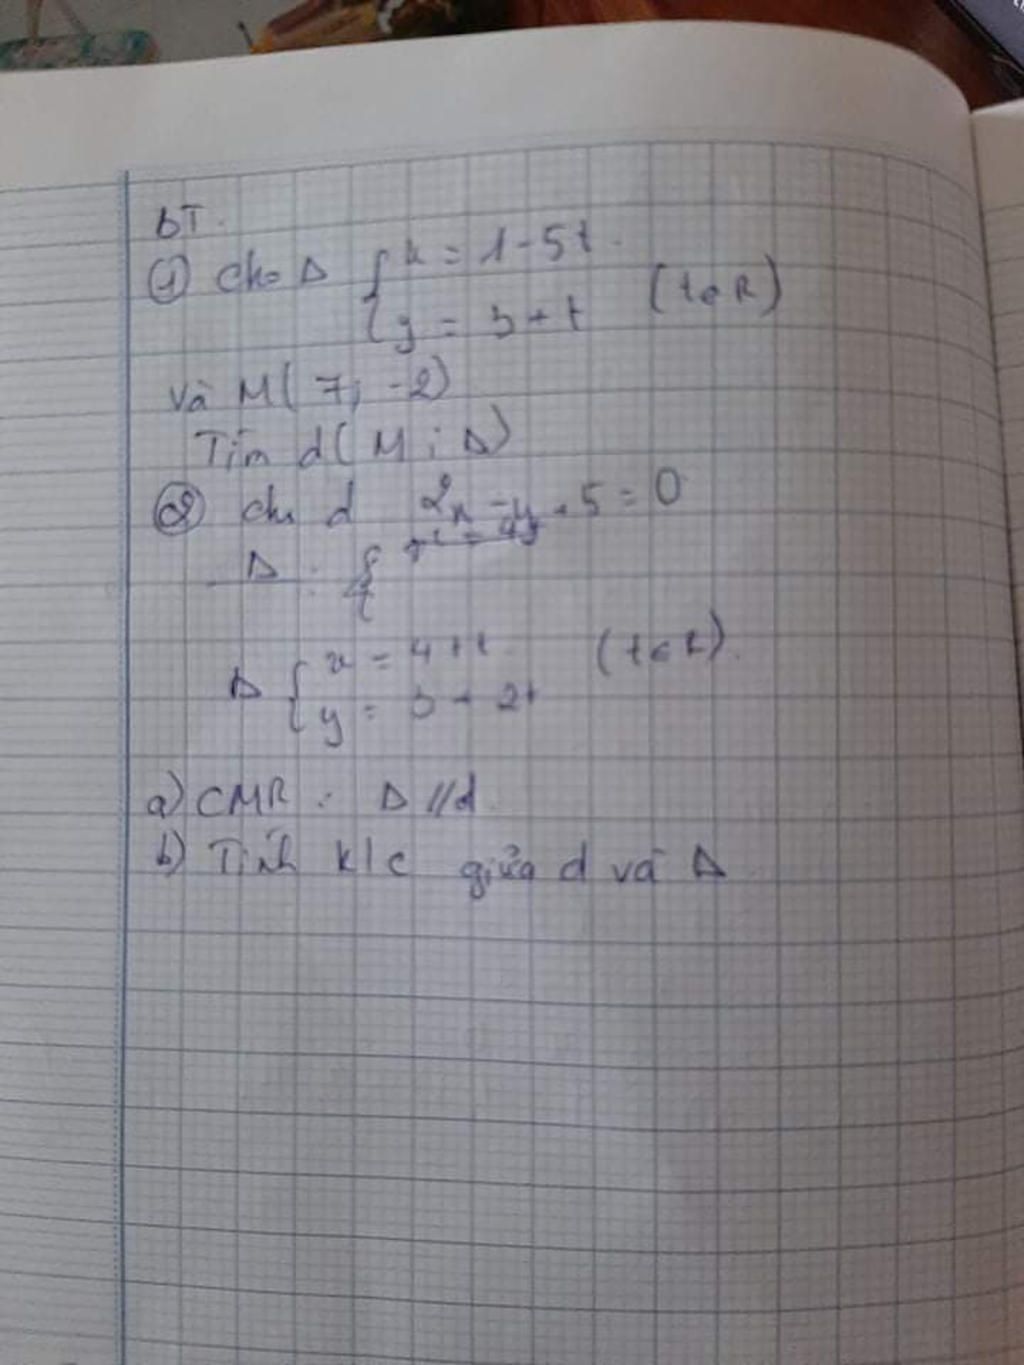 BT.
① Cho Δ { x = 1 - 5t.
y = 3 + t (t ∈ R)
và M( 7; -2)
Tìm d( M ; Δ)
② Cho d 2x - y + 5 = 0
Δ : {
Δ { x = 4 + t (t ∈ R).
y = 3 + 2t
a) CMR : Δ // d.
b) Tính k/c giữa d và Δ